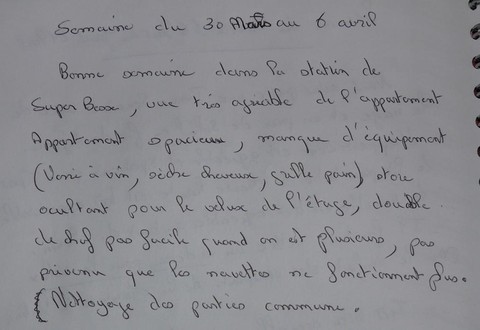 Semaine du 30 Mars au 6 avril
Bonne semaine dans la station de
Super Besse, vue très agréable de l'appartement
Appartement spacieux, manque d'équipement
(Verre à vin, sèche cheveux, grille pain) store
ocultant pour le velux de l'étage, double
de clef pas facile quand on est plusieurs, pas
prévenu que les navettes ne fonctionnent plus.
(Nettoyage des parties commune.